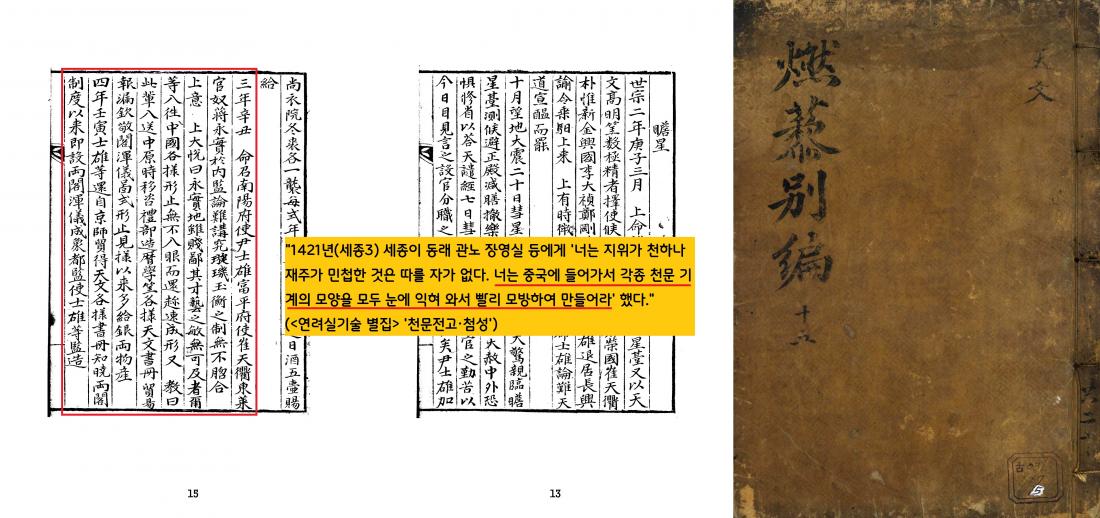 尚衣院冬裘各一襲每式年 日酒五壺賜
給
三年辛丑 命召南陽府使尹士雄富平府使崔天衢東萊
官奴將永實於內監論難講究璇璣玉衡之制無不脗合
上意 上大悅曰永實地雖賤鄙其才藝之敏無可及者爾
等入徃中國各樣形止無不入眼而還趍速成形又 教曰
此輩入送中原時移咨禮部造曆學筭各樣天文書冊貿易
報漏欽敬閣渾儀啚式形止見樣以来多給銀兩物產
四年壬寅士雄等還自京師貿得天文各樣書冊知曉兩閣
制度以來即設兩閣渾儀成象都監使士雄等監造
15
瞻星
世宗二年庚子三月 上命 星臺又以天
文高明筭數極精者擇使 榮國崔天衢
朴惟新金興國李大禎鄭剛 雄退居長興
諭令乘馹上來 上有時微 士雄論難天
道宣醞而罷
十月望地大震二十日彗星 大驚親臨瞻
星臺測候避正殿减膳撤樂 大赦中外恐
惧修省以答天譴經七日彗 官之勤苦以
今日目見言之設官分職之 矣尹士雄加
13
"1421년(세종3) 세종이 동래 관노 장영실 등에게 '너는 지위가 천하나
재주가 민첩한 것은 따를 자가 없다. 너는 중국에 들어가서 각종 천문 기
계의 모양을 모두 눈에 익혀 와서 빨리 모방하여 만들어라' 했다."
(<연려실기술 별집> '천문전고·첨성')
天文
燃藜別編
十五